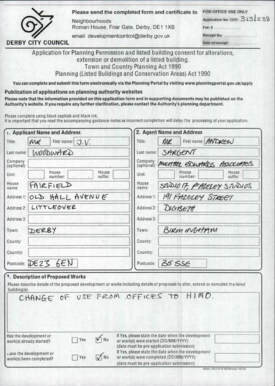 Please send the completed form and certificate to
Neighbourhoods
Roman House, Friar Gate, Derby, DE1 1XB
email: developmentcontrol@derby.gov.uk
FOR OFFICE USE ONLY
DERBY CITY COUNCIL
Application for Planning Permission and listed building consent for alterations,
extension or demolition of a listed building.
Town and Country Planning Act 1990
Planning (Listed Buildings and Conservation Areas) Act 1990
You can complete and submit this form electronically via the Planning Portal by visiting www.planningportal.gov.uk/apply
Publication of applications on planning authority websites
Please note that the information provided on this application form and in supporting documents may be published on the
Authority's website. If you require any further clarification, please contact the Authority's planning department.
Please complete using block capitals and black ink.
It is important that you read the accompanying guidance notes as incorrect completion will delay the processing of your application.
1. Applicant Name and Address
Title: MR First name: J.V.
Last name: WOODWARD
Company (optional):
Unit: House number: House suffix:
House name: FAIRFIELD
Address 1: OLD HALL AVENUE
Address 2: LITTLEOVER
Address 3:
Town: DERBY
County:
Country:
Postcode: DE23 6EN
2. Agent Name and Address
Title: MR First name: ANDREW
Last name: SARGENT
Company (optional): EDWARDS ASSOCIATES
Unit: House number: House suffix:
House name: STUDIO 17, FAZELEY STUDIOS
Address 1: 191 FAZELEY STREET
Address 2: DIGBETH
Address 3:
Town: BIRMINGHAM
County:
Country:
Postcode: B5 5SE
3. Description of Proposed Works
Please describe details of the proposed development or works including details of proposals to alter, extend or demolish the listed
building(s):
CHANGE OF USE FROM OFFICES TO HIMO.
Has the development or work(s) already started? Yes No
If Yes, please state the date when the development
or work(s) were started (DD/MM/YYYY):
(date must be pre-application submission)
Yes No
If Yes, please state the date when the development
or work(s) were completed (DD/MM/YYYY):
(date must be pre-application submission)